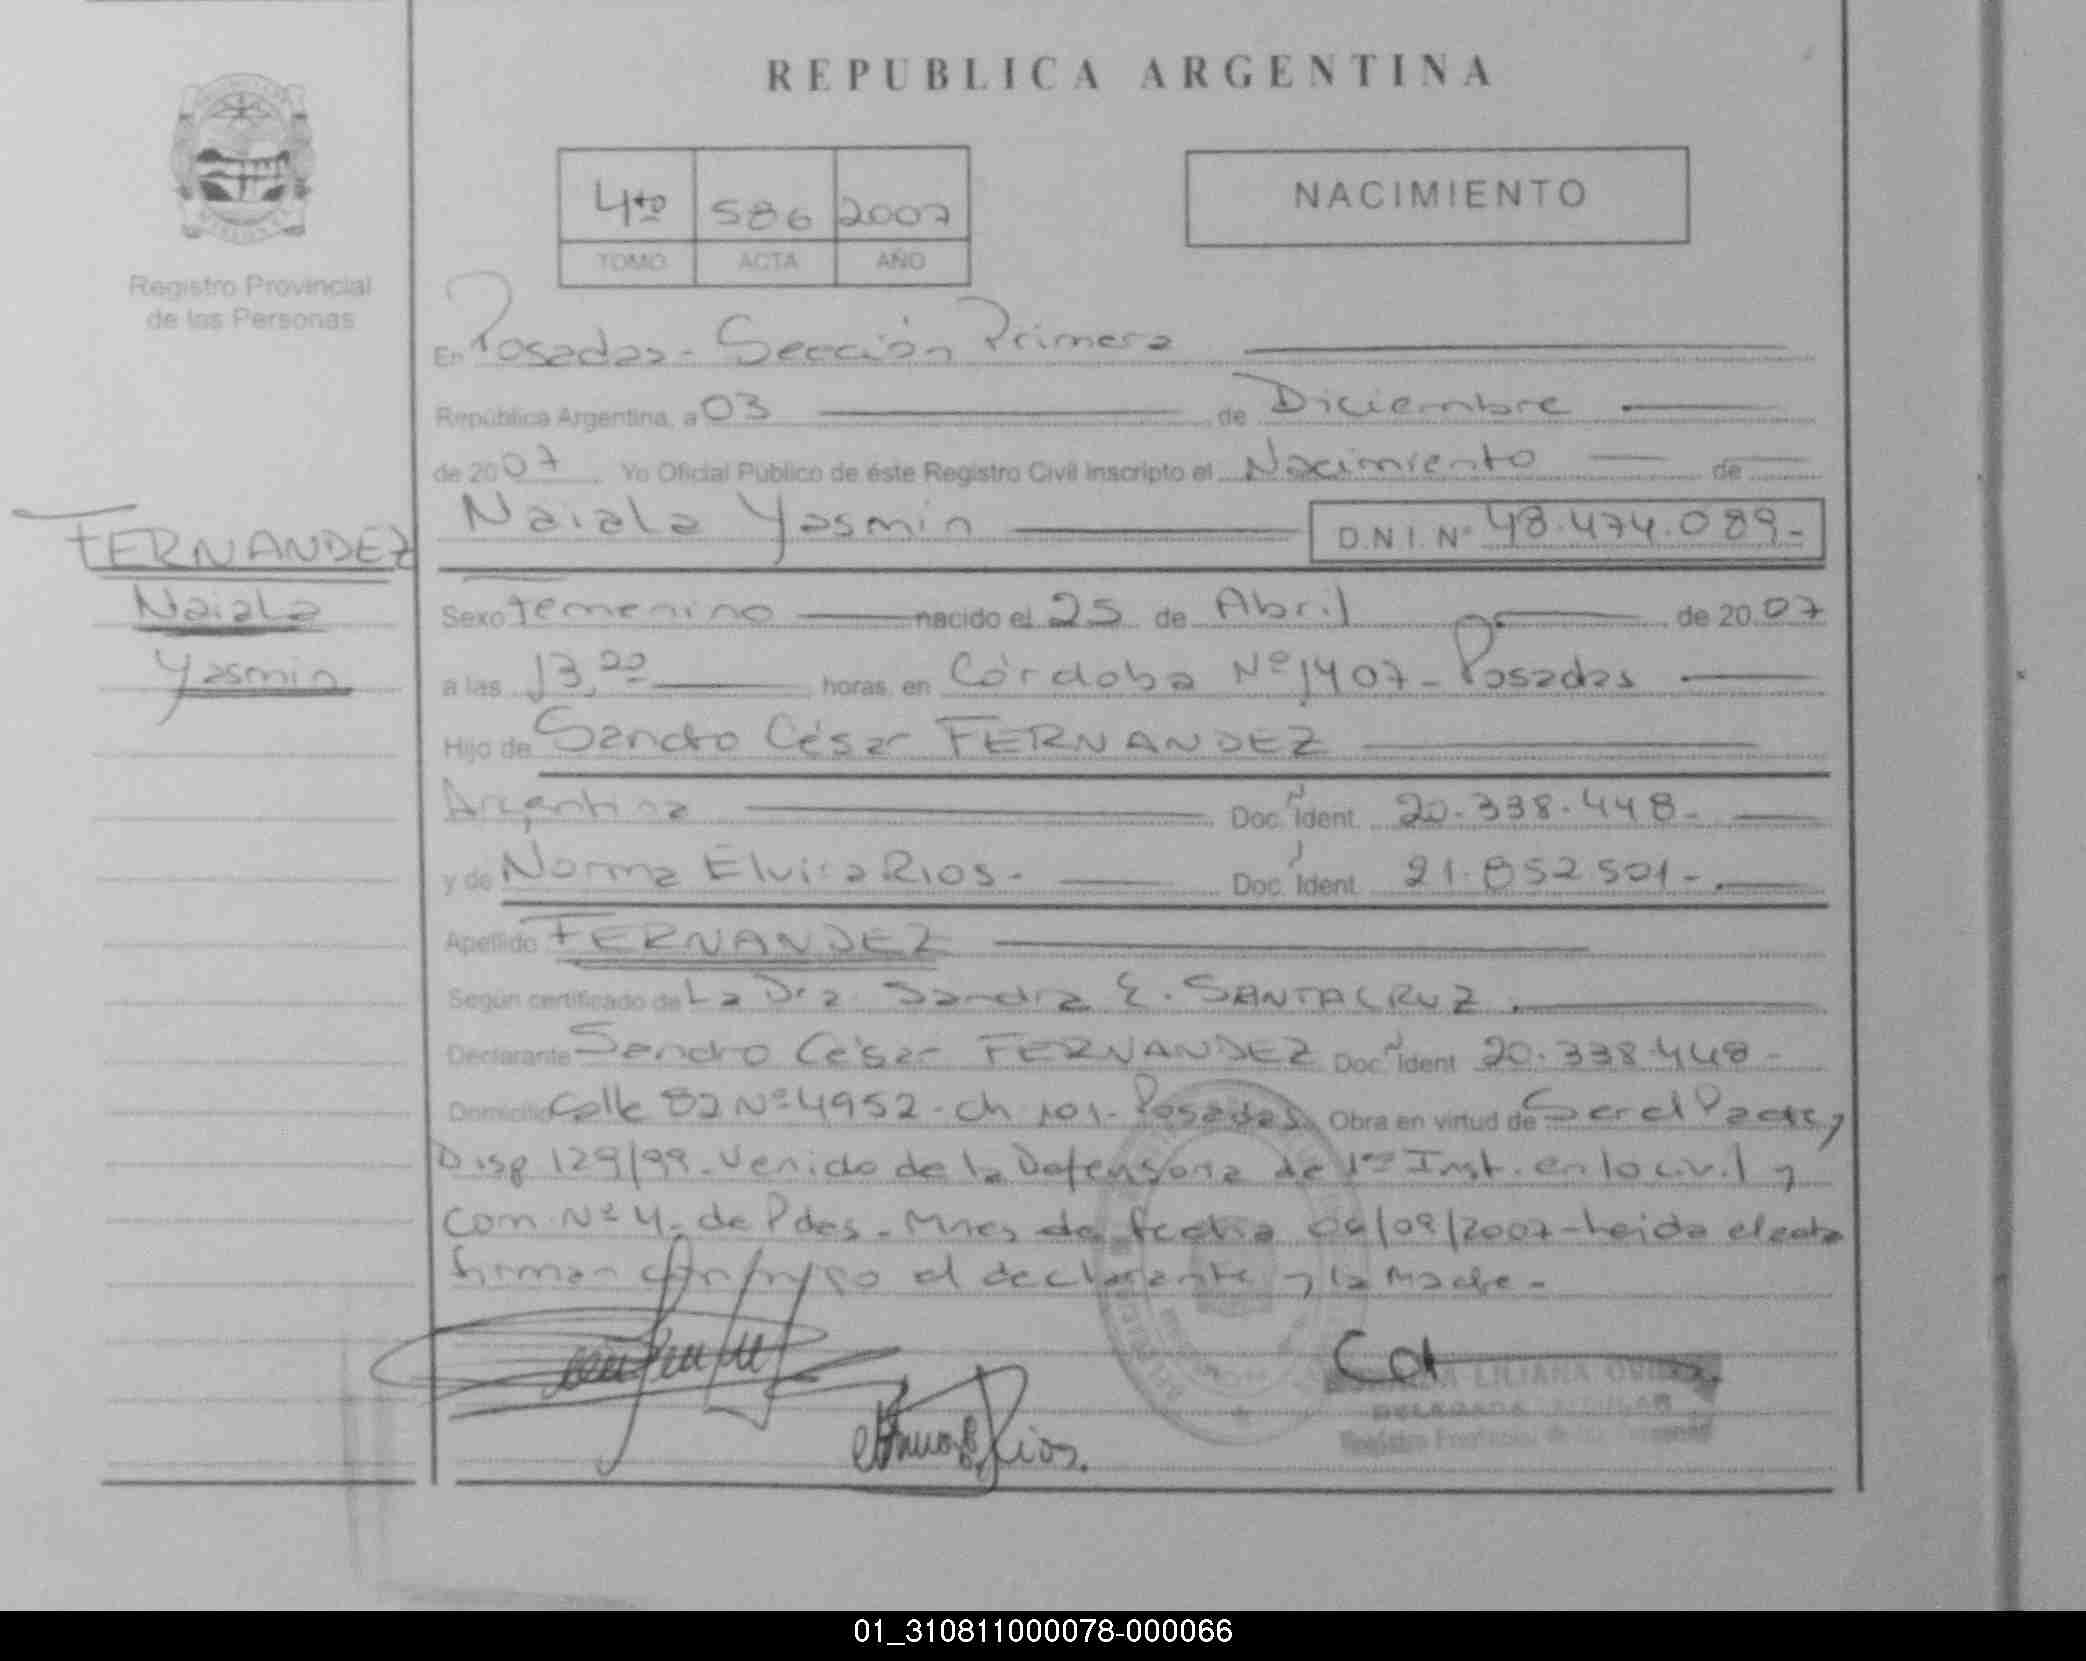 REPUBLICA ARGENTINA
4to 586 2007
TOMO ACTA AÑO
NACIMIENTO
Registro Provincial
de las Personas
En Posadas - Sección Primera
República Argentina, a 03 de Diciembre
de 2007 Yo Oficial Público de éste Registro Civil Inscripto el Nacimiento de
Naiala Yasmin D.N.I. Nº 48.474.089-
FERNANDEZ
Naiala
Yasmin
Sexo Femenino nacido el 25 de Abril de 2007
a las 13,20 horas, en Córdoba Nº 1407 - Posadas
Hijo de Sandro César FERNANDEZ
Argentina Doc. Ident. 20.338.448-
y de Norma Elvira RIOS - Doc. Ident. 21.852501-
Apellido FERNANDEZ
Según certificado de La Dra. Sandra E. SANTACRUZ
Declarante Sandro César FERNANDEZ Doc. Ident 20.338.448-
Domicilio Calle 82 Nº 4952 - ch 101 - Posadas Obra en virtud de Ser el Padre y
Disp 129/99 - Venido de la Defensoria de 1ra Inst. en lo civil y
Com. Nº 4 - de Pdas - Mnes de fecha /09/2007 - Leida el acta
firman conmigo el declarante y la Madre -
Rios.
LILIANA
Registro Provincial de las Personas
01_310811000078-000066